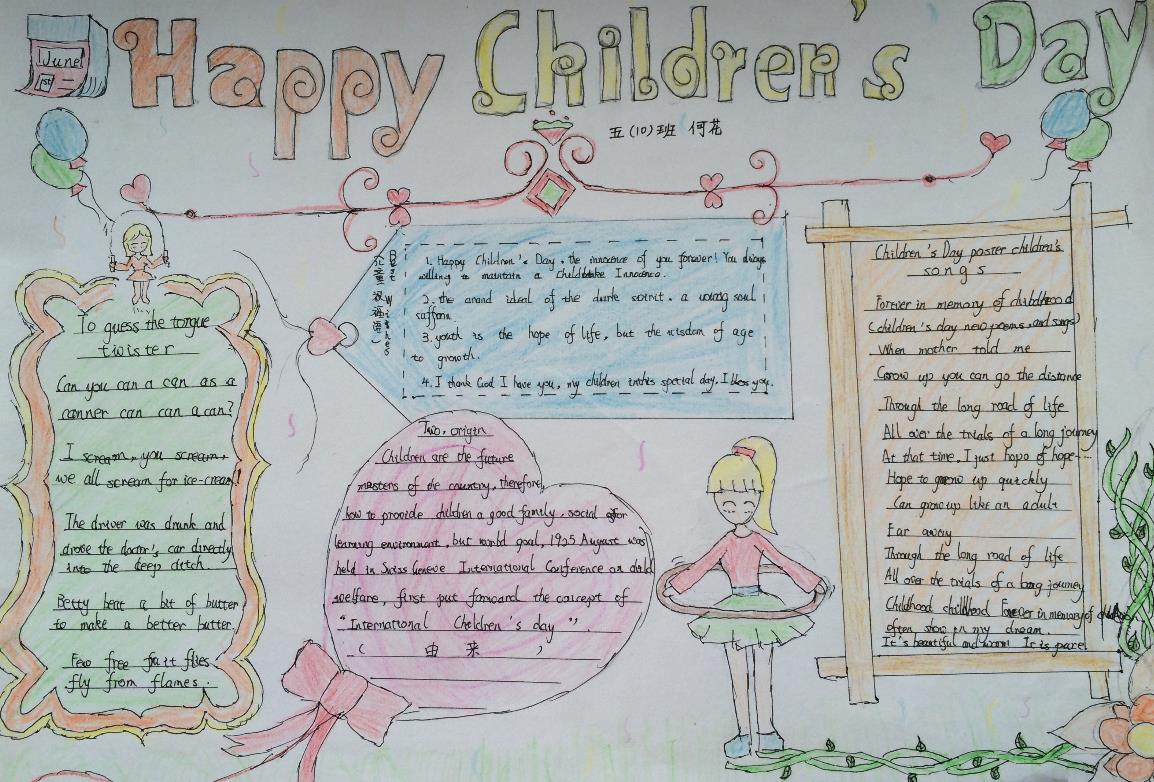 June
1st
Happy Children's Day
五(10)班 何花
To guess the tongue
twister
Can you can a can as a
canner can can a can?
I scream, you scream,
we all scream for ice-cream!
The driver was drunk and
drove the doctor's car directly
into the deep ditch.
Betty beat a bit of butter
to make a better butter.
Few free fruit flies
fly from flames.
儿童祝福语)
Best Wishes
1. Happy Children's Day, the innocence of you forever! You always
willing to maintain a childlike Innocence.
2. the grand ideal of the dark spirit. a young soul
3. youth is the hope of life, but the wisdom of age
to growth.
4. I thank God I have you, my children in this special day, I bless you.
Two, origin
Children are the future
masters of the country, therefore,
how to provide children a good family, social
learning environment, but world goal, 1925 August was
held in Swiss Geneve International Conference on child
welfare, first put forward the concept of
"International Children's day".
( 由 来 )
Children's Day poster children's
songs
Forever in memory of childhood
(children's day new poems and songs)
When mother told me
Grow up you can go the distance
Through the long road of life
All over the trials of a long journey
At that time, I just hope of hope---
Hope to grow up quickly
Can grow up like an adult
Far away
Through the long road of life
All over the trials of a long journey
Childhood childhood Forever in memory of
often show in my dream.
It's beautiful and warm It is pure!